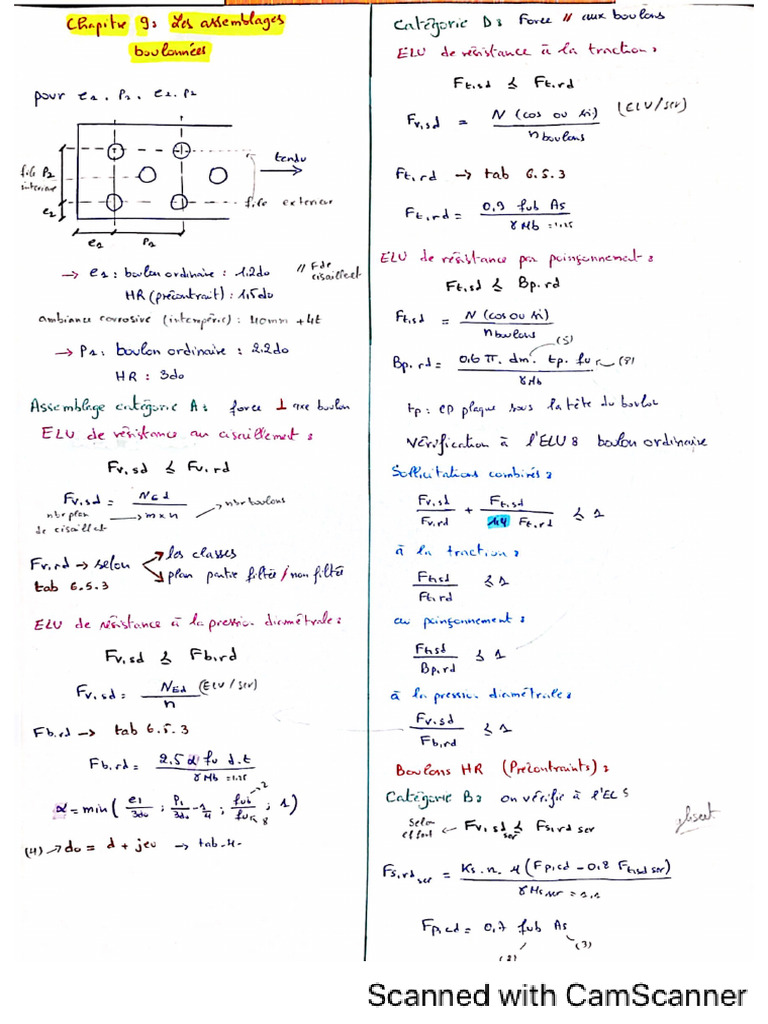 Chapitre 9: Les assemblages
boulonnées
pour e1, P1, e2, P2
file P2
interieur
e2
tendu
file exterieur
e1 P1
→ e1: boulon ordinaire : 1.2do // F de cisaillet
HR (précontrait) : 1,5do
ambiance corrosive (intempérie) : 40mm + 4t
→ P1: boulon ordinaire : 2.2do
HR : 3do
Assemblage catégorie A: force ⊥ aux boulon
ELU de résistance au cisaillement :
Fv,sd ≤ Fv,rd
Fv,sd = NEd / m x n → nbr boulons
nbr plan de cisaillet
Fv,rd → selon → les classes
→ plan partie filtée / non filtée
tab 6.5.3
ELU de résistance à la pression diamétrale :
Fv,sd ≤ Fb,rd
Fv,sd = NEd / n (ELU/ser)
Fb,rd → tab 6.5.3
Fb,rd = 2,5 α fu d.t / γMb = 1.25
α = min ( e1/3do ; P1/3do - 1/4 ; fub/fu ; 1 )
2
8
(4) → do = d + jeu → tab 4.
Catégorie D: Force // aux boulons
ELU de résistance à la traction :
Ft,sd ≤ Ft,rd
Fv,sd = N (cos ou si) / n boulons (ELU/ser)
Ft,rd → tab 6.5.3
Ft,rd = 0,9 fub As / γMb = 1.25
ELU de résistance par poinçonnement :
Ft,sd ≤ Bp,rd
Ft,sd = N (cos ou si) / n boulons
Bp,rd = 0.6 π. dm. tp. fu / γMb
(5)
(8)
tp : ep plaque sous la tête du boulon
Vérification à l'ELU 8 boulon ordinaire
Sollicitations combinés :
Fv,sd / Fv,rd + Ft,sd / 1,4 Ft,rd ≤ 1
à la traction :
Ft,sd / Ft,rd ≤ 1
au poinçonnement :
Ft,sd / Bp,rd ≤ 1
à la pression diamétrale :
Fv,sd / Fb,rd ≤ 1
Boulons HR (Précontraints) :
Catégorie B: on vérifie à l'ELS
selon effort ← Fv,sd ser ≤ Fs,rd ser
Fs,rd ser = Ks. n. μ (Fp,cd - 0,8 Ft,sd ser) / γMs ser = 1,1
Fp,cd = 0,7 fub As
(2)
(3)
Scanned with CamScanner